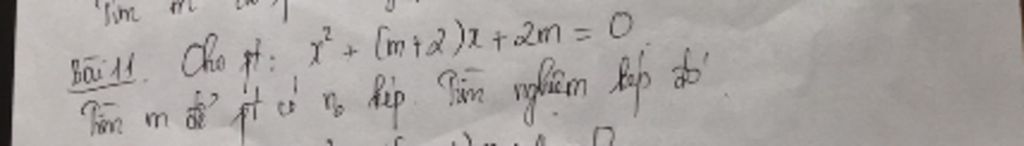 Tìm m
Bài 11. Cho pt: x² + (m+2)x + 2m = 0
Tìm m để pt có n₀ kép. Tìm nghiệm kép đó